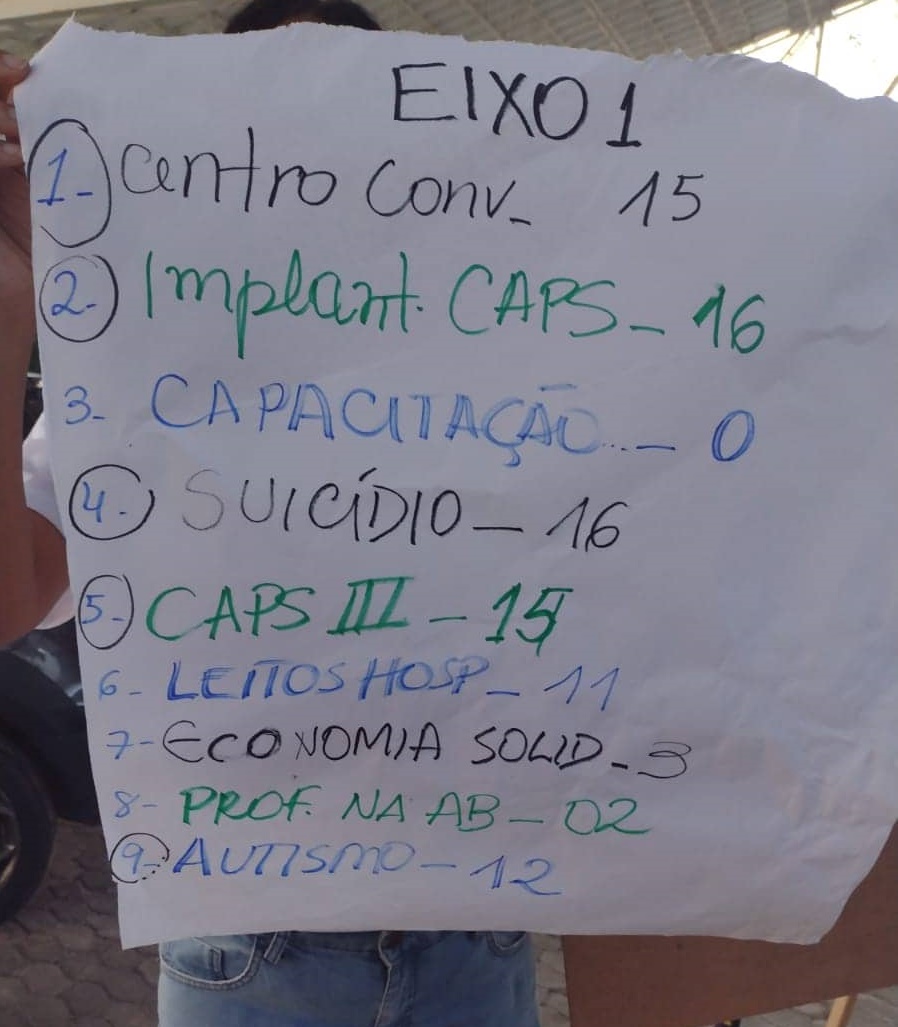 EIXO 1
1- Centro Conv_ 15
2- Implant. CAPS_ 16
3- CAPACITAÇÃO...- 0
4- SUICÍDIO - 16
5- CAPS III - 15
6- LEITOS HOSP_ 11
7- ECONOMIA SOLID_ 3
8- PROF. NA AB - 02
9- AUTISMO - 12